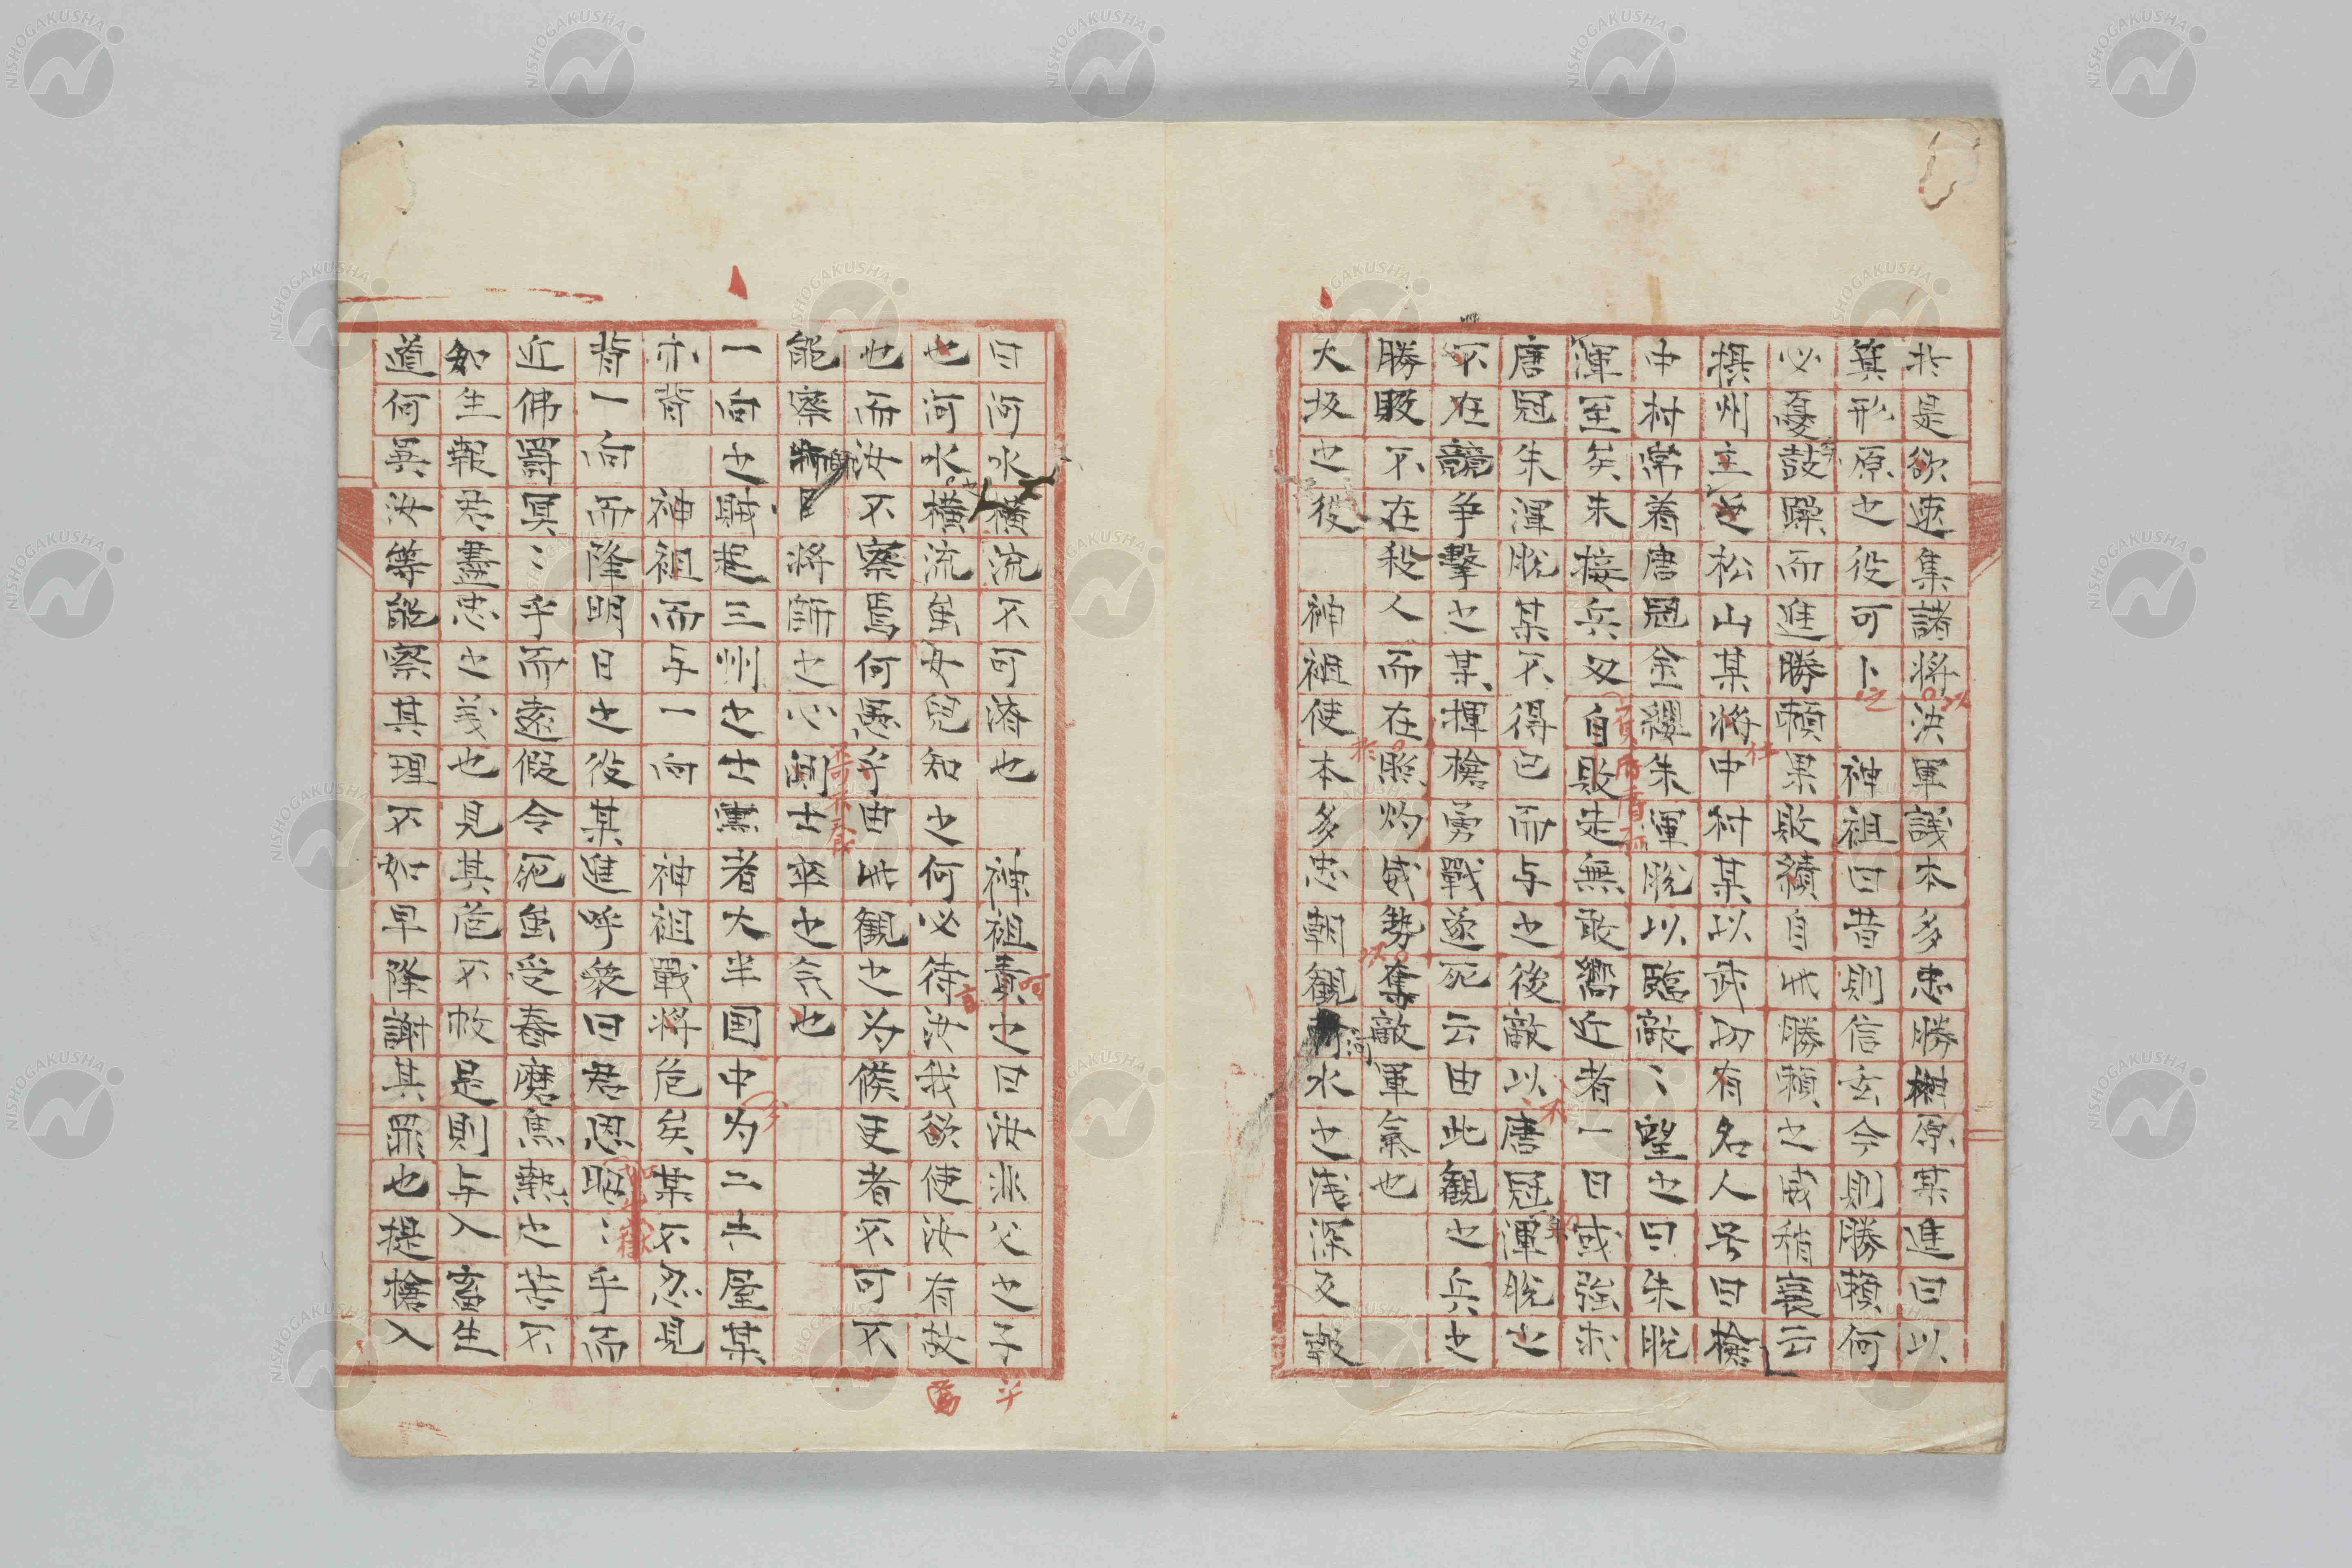 於是欲速集諸将決軍議本多忠勝榊原某進曰以
箕形原之役可卜　神祖曰昔則信玄今則勝頼何
必憂鼓躁而進勝頼果敗績自此勝頼之威稍衰云
摂州主之松山某将中村某以武功有名人呂曰槍
中村常着唐冠金纓朱渾脱以臨敵〻望之曰朱脱
渾至矣未接兵又自敗走無敢嚮近者一日或強求
唐冠朱渾脱某不得已而与之後敵以唐冠渾脱之
不在競争撃之某揮槍勇戰遂死云由此観之兵之
勝敗不在殺人而在照灼威勢奪敵軍氣也
大坂之役　神祖使本多忠朝観河水之浅深反報
曰河水横流不可済也　神祖責之曰汝非父之子
也河水横流虽女兒知之何必待汝我欲使汝有故
也而汝不察焉何愚乎由此観之为候吏者不可不
能察將師之心闘士卒之气也
一向之賊起三州之士黨者大半国中为二土屋某
亦背　神祖而与一向　神祖戰将危矣某不忍見
背一向而降明日之役某進呼衆曰君恩昭〻乎而
近佛罸冥〻乎而遠假令死虽受舂磨焦熱之苦不
如生報君盡忠之義也見其危不救是則与入畜生
道何異汝等能察其理不如早降謝其罪也提槍入